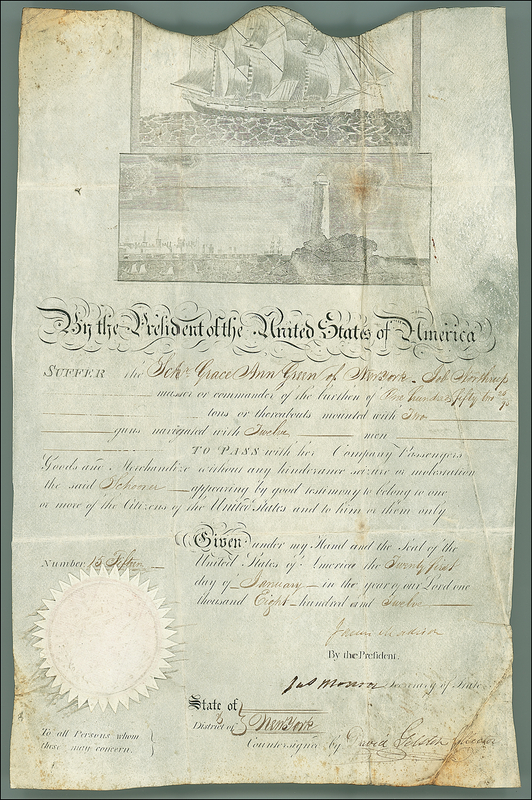 By the President of the United States of America
SUFFER the Schr. Grace Ann Green of New York - Job Northrop
master or commander of the burthen of One hundred fifty
tons or thereabouts mounted with Two
guns navigated with Twelve men
TO PASS with her Company Passengers
Goods and Merchandize without any hinderance seizure or molestation
the said Schooner appearing by good testimony to belong to one
or more of the Citizens of the United States and to him or them only
Given under my Hand and the Seal of the
United States of America the Twenty first
day of January in the year of our Lord one
thousand Eight hundred and Twelve
Number 15 Fifteen
James Madison
By the President.
Jas Monroe Secretary of State
State of
District of } New York
Countersigned by David Gelston Collector
To all Persons whom
these may concern. }